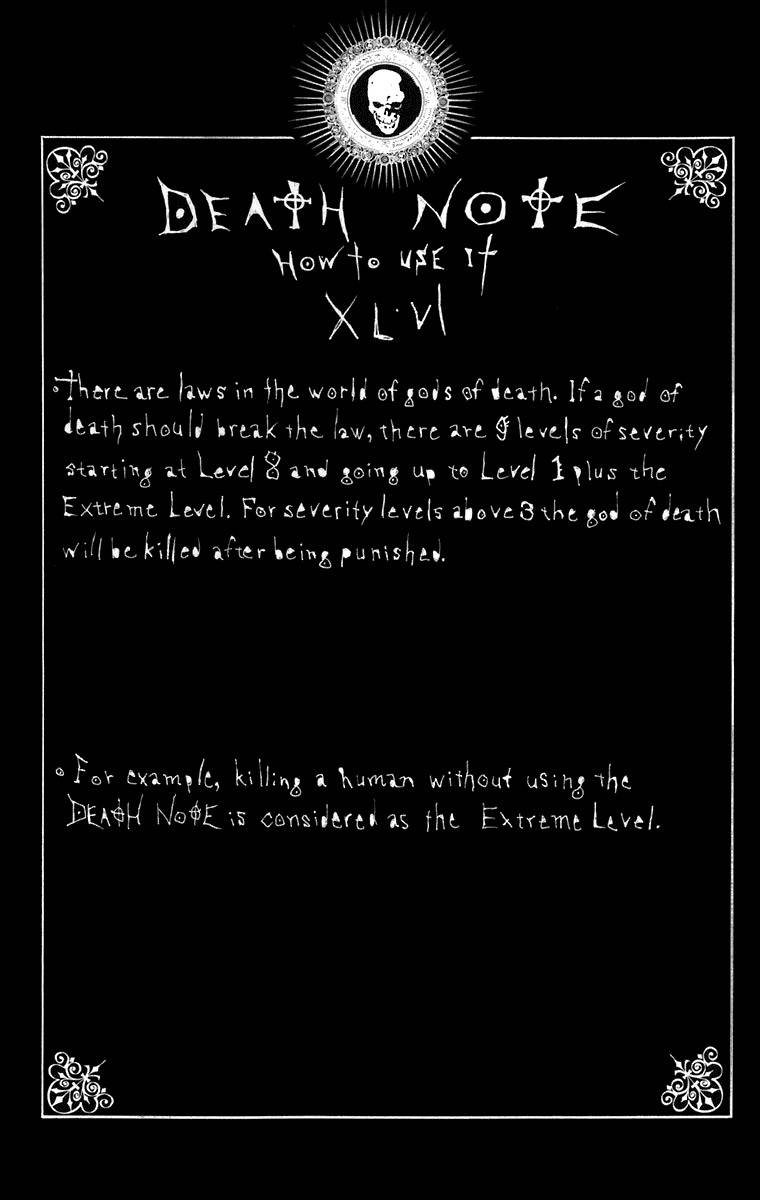 DEATH NOTE
HOW to USE It
XL·VI
◦There are laws in the world of gods of death. If a god of
death should break the law, there are 9 levels of severity
starting at Level 8 and going up to Level 1 plus the
Extreme Level. For severity levels above 3 the god of death
will be killed after being punished.
◦ For example, killing a human without using the
DEATH NOTE is considered as the Extreme Level.